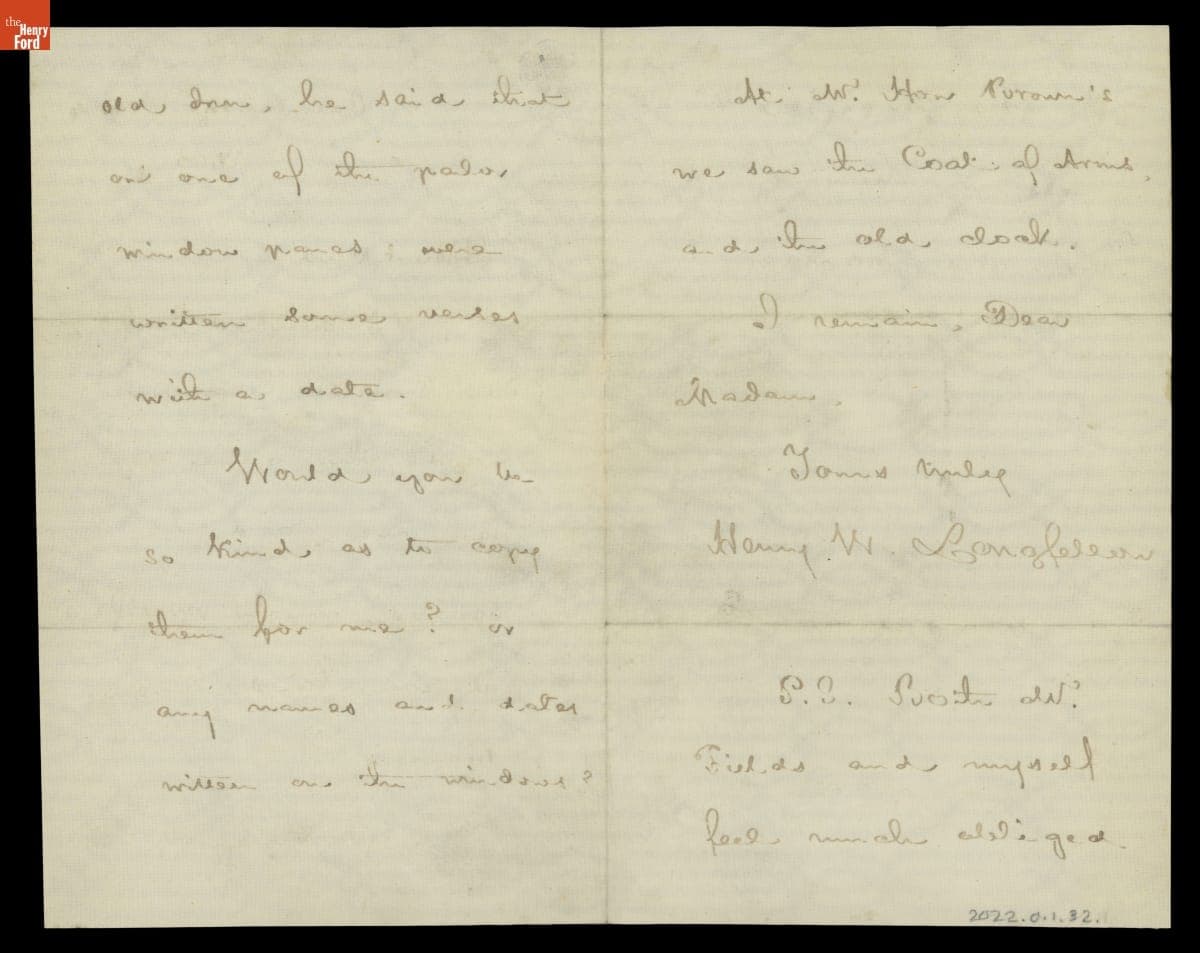 the
Henry
Ford
old Inn, he said that
on one of the palor
window panes, were
written some verses
with a date.
Would you be
so kind as to copy
them for me? or
any names and dates
written on the windows?
At Mr. Hor Brown's
we saw the Coat of Arms,
and the old clock.
I remain, Dear
Madam,
Yours truly
Henry W. Longfellow
P.S. Both Mr.
Fields and myself
feel much obliged.
2022.0.1.32.